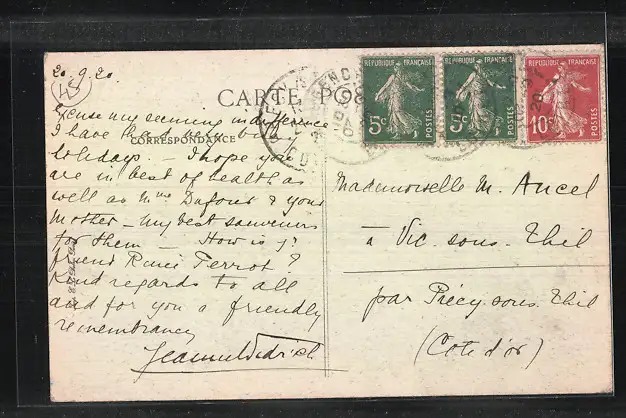 20.9.20
45
CARTE PO
CORRESPONDANCE
Excuse my seeming indifference
I have
holidays. — I hope you
are in best of health as
well as Mme Dufour & your
mother — my best souvenirs
for them — How is yr
friend Renée Perrot?
Kind regards to all
and for you a friendly
remembrance
RÉPUBLIQUE FRANÇAISE
5c
POSTES
RÉPUBLIQUE FRANÇAISE
5c
POSTES
RÉPUBLIQUE FRANÇAISE
10c
POSTES
Mademoiselle M. Ancel
à Vic-sous-Thil
par Précy-sous-Thil
(Côte d'or)